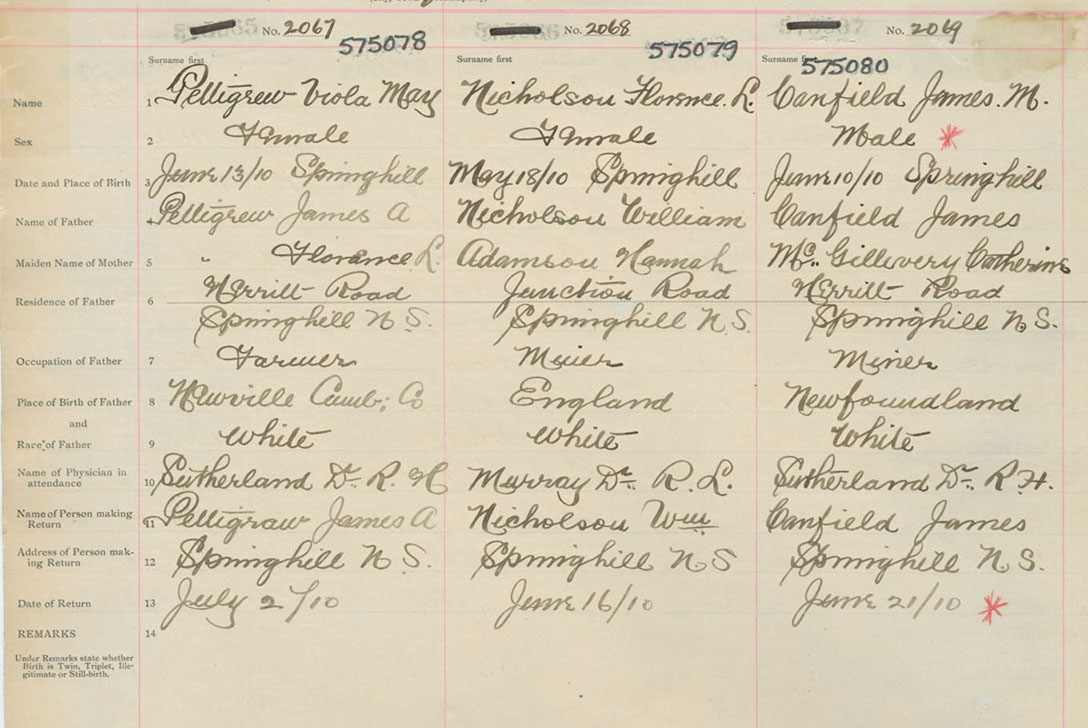 No. 2067 No. 2068 No. 2069
575078 575079 575080
Surname first Surname first Surname first
Name 1 Pelligrew Viola May Nicholson Florence. L. Canfield James. M.
Sex 2 Female Female Male *
Date and Place of Birth 3 June 13/10 Springhill May 18/10 Springhill June 10/10 Springhill
Name of Father 4 Pelligrew James A Nicholson William Canfield James
Maiden Name of Mother 5 " Florance L. Adamson Hannah Mc. Gillevery Catherine
Merritt Road Junction Road Merritt Road
Residence of Father 6
Springhill N S. Springhill N. S. Springhill N S.
Occupation of Father 7 Farmer Meier Miner
Place of Birth of Father 8 Newville Cumb; Co England Newfoundland
and
Race of Father 9 White White White
Name of Physician in
attendance 10 Sutherland Dr. R. H Murray Dr. R. L. Sutherland Dr. R H.
Name of Person making
Return 11 Pelligraw James A Nicholson Wm Canfield James
Address of Person mak-
ing Return 12 Springhill N S. Springhill N S Springhill N. S.
Date of Return 13 July 2/10 June 16/10 June 21/10 *
REMARKS 14
Under Remarks state whether
Birth is Twin, Triplet, Ille-
gitimate or Still-birth.